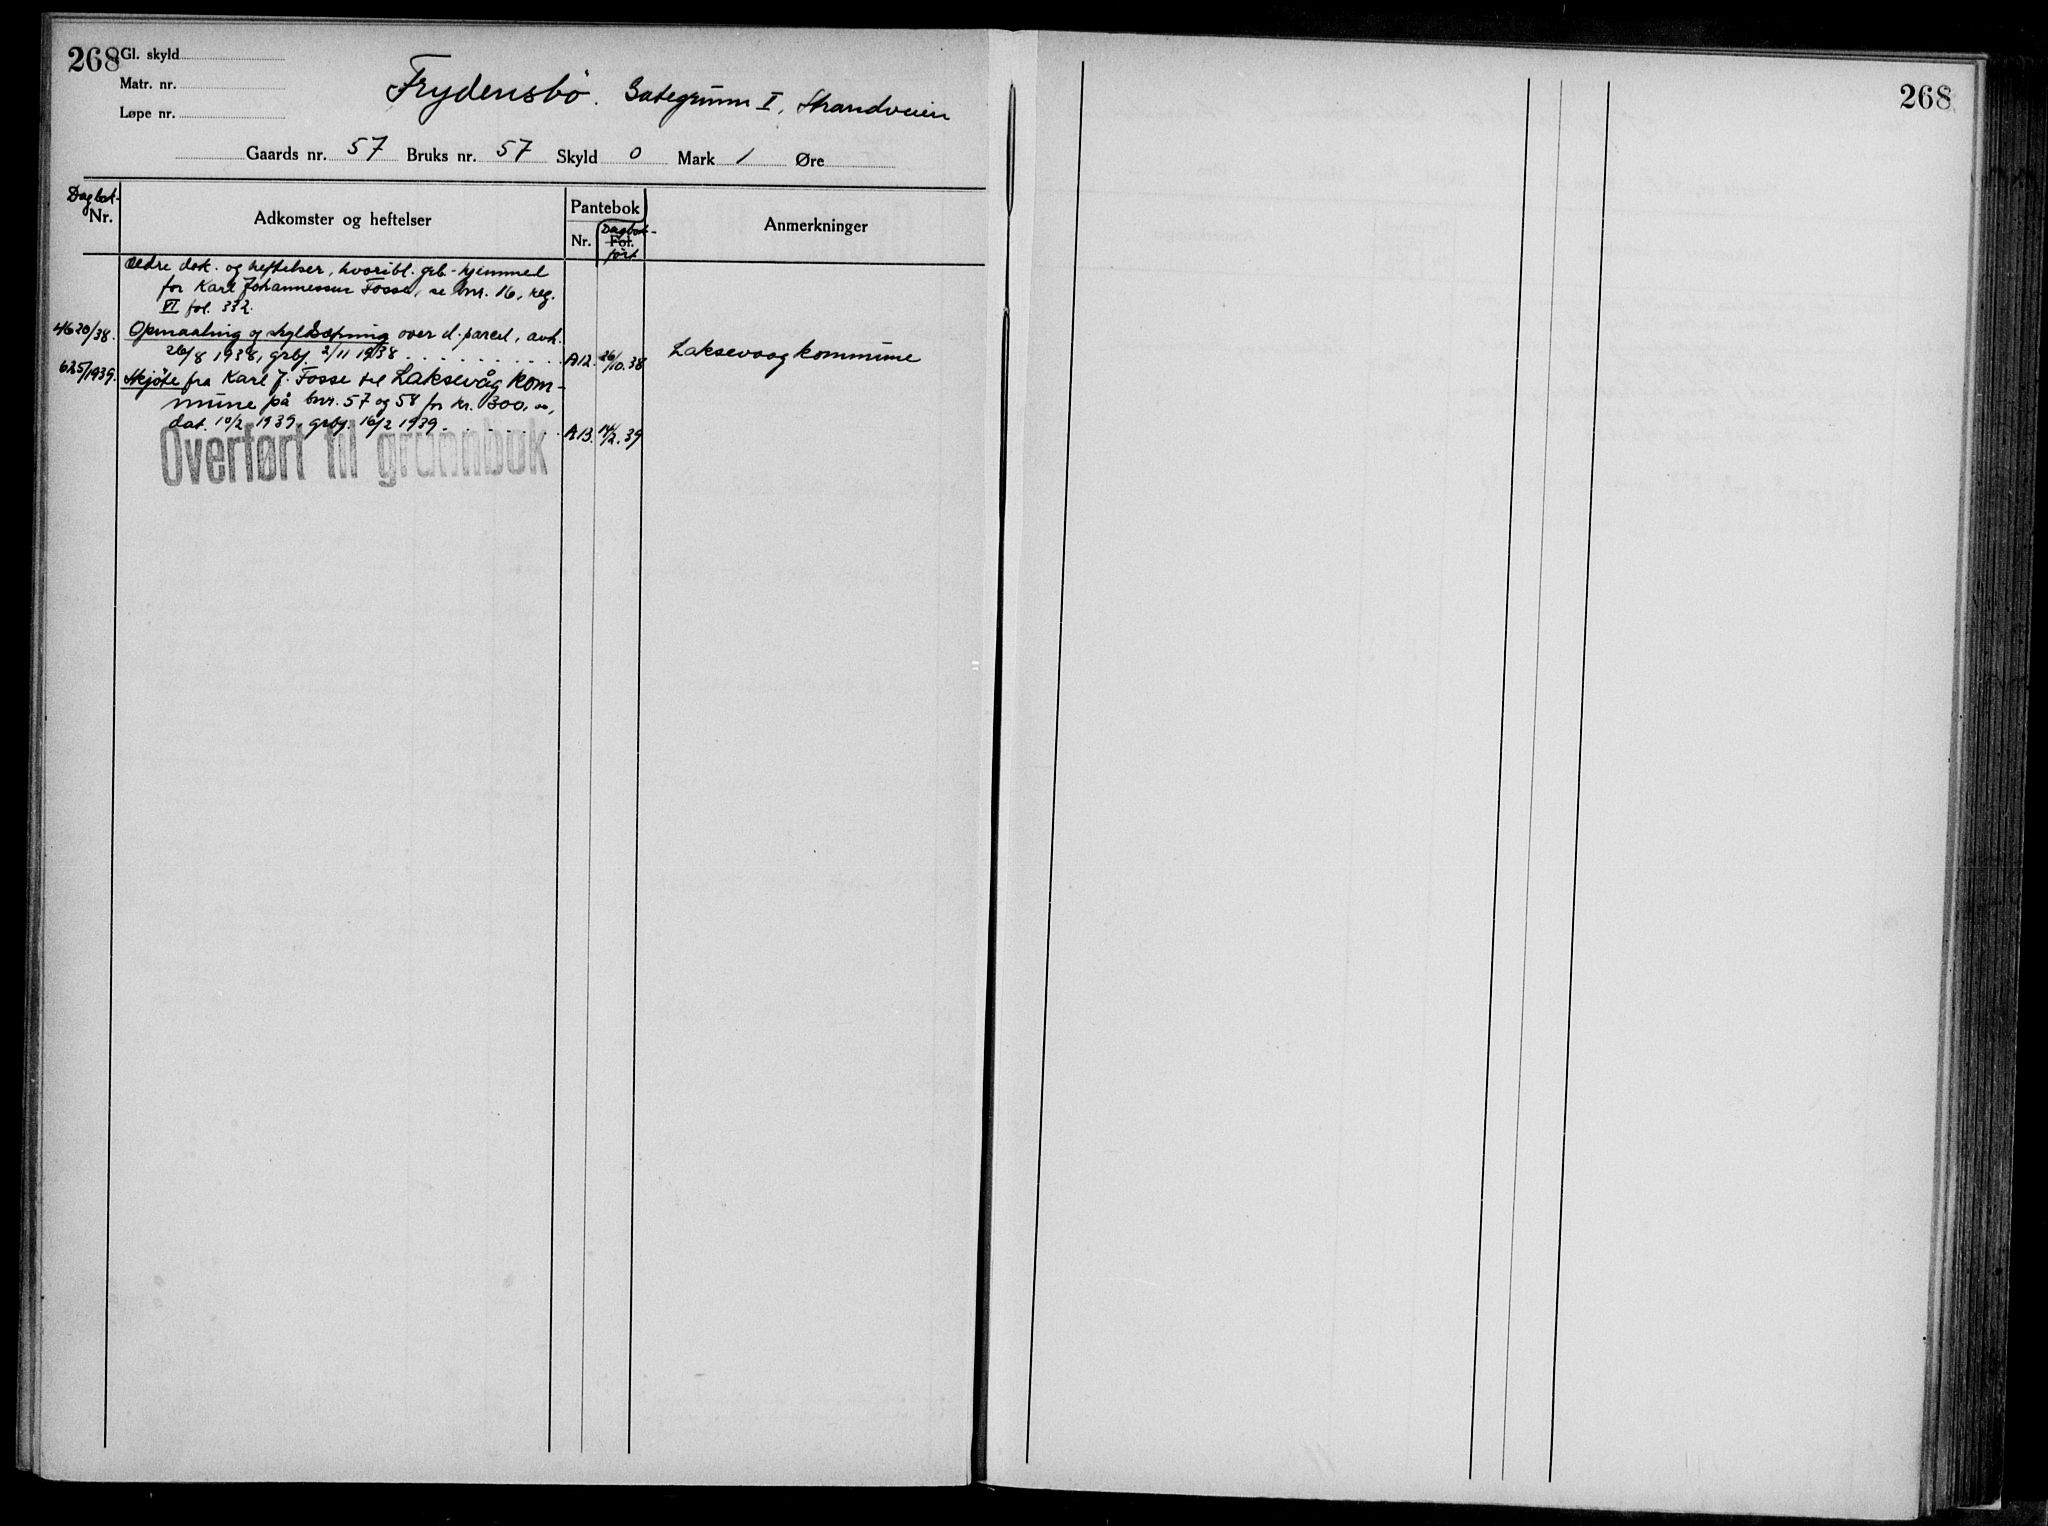 268
Gl. skyld
Matr. nr.
Løpe nr.
Frydensbö. Gategrunn I, Strandveien
Gaards nr. 57 Bruks nr. 57 Skyld 0 Mark 1 Øre
Dagbok-
Nr.
Adkomster og heftelser
Pantebok
Nr.
Dagbok-
Fol.
ført
Anmerkninger
Ældre dok. og heftelser, hvoribl. grb-hjemmel
for Karl Johannessen Fosse, se bnr. 16, reg.
VI fol. 332.
4620/38. Opmaaling og skyldsetning over d. parcel, avh.
26/8 1938, grbj. 2/11 1938 A12. 26/10.38 Laksevaag kommune
625/1939. Skjöte fra Karl J. Fosse til Laksevåg kom-
mune på bnr. 57 og 58 for kr. 300,00,
dat. 10/2 1939, grbj. 16/2 1939. A13. 14/2.39
Overført til grunnbok
268